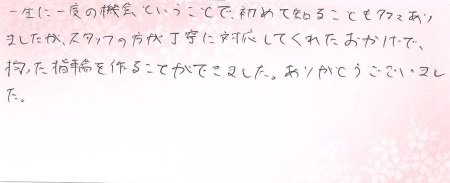 一生に一度の機会ということで、初めて知ることも多々あり
ましたが、スタッフの方が丁寧に対応してくれたおかげで、
拘った指輪を作ることができました。ありがとうございまし
た。